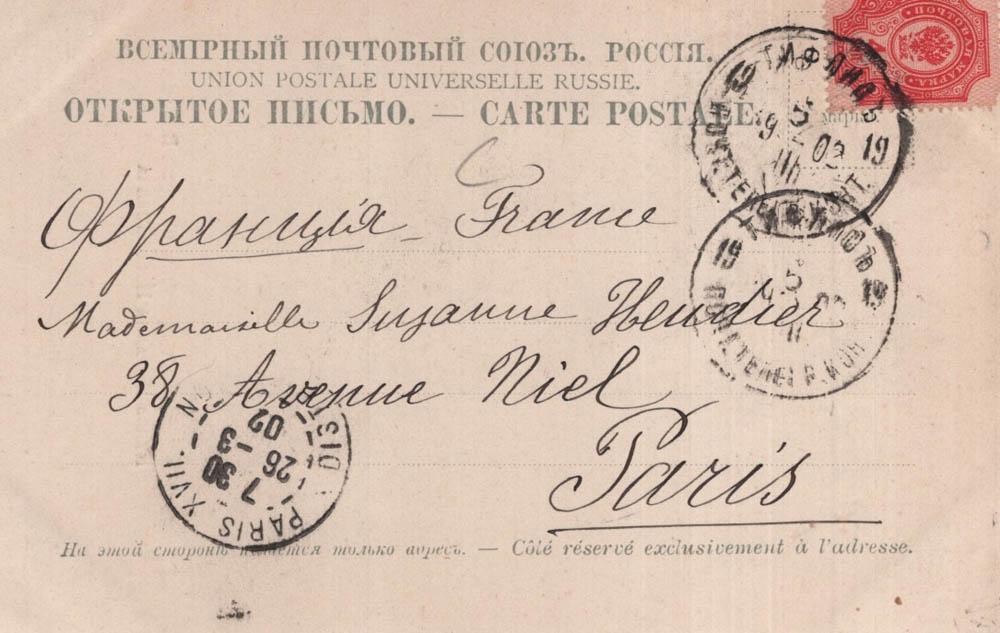 ВСЕМІРНЫЙ ПОЧТОВЫЙ СОЮЗЪ. РОССІЯ.
UNION POSTALE UNIVERSELLE RUSSIE.
ОТКРЫТОЕ ПИСЬМО. — CARTE POSTALE.
марки
МАРКА
ТИФЛИСЪ
19 19
Франція France
ТИФЛИСЪ
19 19
Mademoiselle Suzanne Hendier
38 Avenue Niel
Paris
PARIS XVII. DIS
7 30
26 -3
02
На этой сторонѣ пишется только адресъ. — Côté réservé exclusivement à l'adresse.